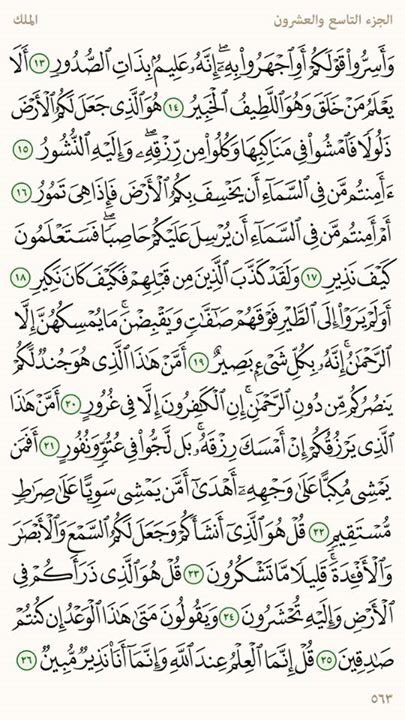 الجزء التاسع والعشرون
الملك
وَأَسِرُّوا۟ قَوْلَكُمْ أَوِ ٱجْهَرُوا۟ بِهِۦٓ ۖ إِنَّهُۥ عَلِيمٌۢ بِذَاتِ ٱلصُّدُورِ ١٣ أَلَا
يَعْلَمُ مَنْ خَلَقَ وَهُوَ ٱللَّطِيفُ ٱلْخَبِيرُ ١٤ هُوَ ٱلَّذِى جَعَلَ لَكُمُ ٱلْأَرْضَ
ذَلُولًا فَٱمْشُوا۟ فِى مَنَاكِبِهَا وَكُلُوا۟ مِن رِّزْقِهِۦ ۖ وَإِلَيْهِ ٱلنُّشُورُ ١٥
ءَأَمِنتُم مَّن فِى ٱلسَّمَآءِ أَن يَخْسِفَ بِكُمُ ٱلْأَرْضَ فَإِذَا هِىَ تَمُورُ ١٦
أَمْ أَمِنتُم مَّن فِى ٱلسَّمَآءِ أَن يُرْسِلَ عَلَيْكُمْ حَاصِبًا ۖ فَسَتَعْلَمُونَ
كَيْفَ نَذِيرِ ١٧ وَلَقَدْ كَذَّبَ ٱلَّذِينَ مِن قَبْلِهِمْ فَكَيْفَ كَانَ نَكِيرِ ١٨
أَوَلَمْ يَرَوْا۟ إِلَى ٱلطَّيْرِ فَوْقَهُمْ صَٰٓفَّٰتٍ وَيَقْبِضْنَ ۚ مَا يُمْسِكُهُنَّ إِلَّا
ٱلرَّحْمَٰنُ ۚ إِنَّهُۥ بِكُلِّ شَىْءٍۭ بَصِيرٌ ١٩ أَمَّنْ هَٰذَا ٱلَّذِى هُوَ جُندٌ لَّكُمْ
يَنصُرُكُم مِّن دُونِ ٱلرَّحْمَٰنِ ۚ إِنِ ٱلْكَٰفِرُونَ إِلَّا فِى غُرُورٍ ٢٠ أَمَّنْ هَٰذَا
ٱلَّذِى يَرْزُقُكُمْ إِنْ أَمْسَكَ رِزْقَهُۥ ۚ بَل لَّجُّوا۟ فِى عُتُوٍّ وَنُفُورٍ ٢١ أَفَمَن
يَمْشِى مُكِبًّا عَلَىٰ وَجْهِهِۦٓ أَهْدَىٰٓ أَمَّن يَمْشِى سَوِيًّا عَلَىٰ صِرَٰطٍ
مُّسْتَقِيمٍ ٢٢ قُلْ هُوَ ٱلَّذِىٓ أَنشَأَكُمْ وَجَعَلَ لَكُمُ ٱلسَّمْعَ وَٱلْأَبْصَٰرَ
وَٱلْأَفْـِٔدَةَ ۖ قَلِيلًا مَّا تَشْكُرُونَ ٢٣ قُلْ هُوَ ٱلَّذِى ذَرَأَكُمْ فِى
ٱلْأَرْضِ وَإِلَيْهِ تُحْشَرُونَ ٢٤ وَيَقُولُونَ مَتَىٰ هَٰذَا ٱلْوَعْدُ إِن كُنتُمْ
صَٰدِقِينَ ٢٥ قُلْ إِنَّمَا ٱلْعِلْمُ عِندَ ٱللَّهِ وَإِنَّمَآ أَنَا۠ نَذِيرٌ مُّبِينٌ ٢٦
٥٦٣